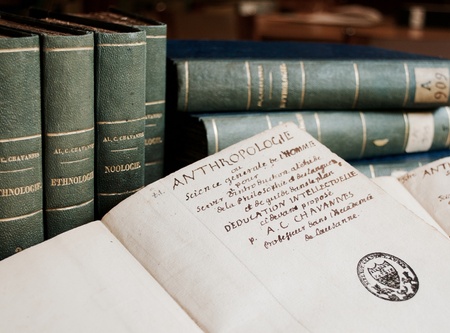 AL. C. CHAVANNES
ETHNOLOGIE
AL. C. CHAVANNES
ETHNOLOGIE.
AL. C. CHAVANNES
NOOLOGIE.
A
909
ANTHROPOLOGIE
ou
Science générale de l'HOMME
pour
servir d'introduction à l'étude
de la Philosophie et des Langues
et de guide dans le plan
D'ÉDUCATION INTELLECTUELLE
ci-devant proposé
p. A. C. CHAVANNES
Professeur dans l'Académie
de Lausanne.